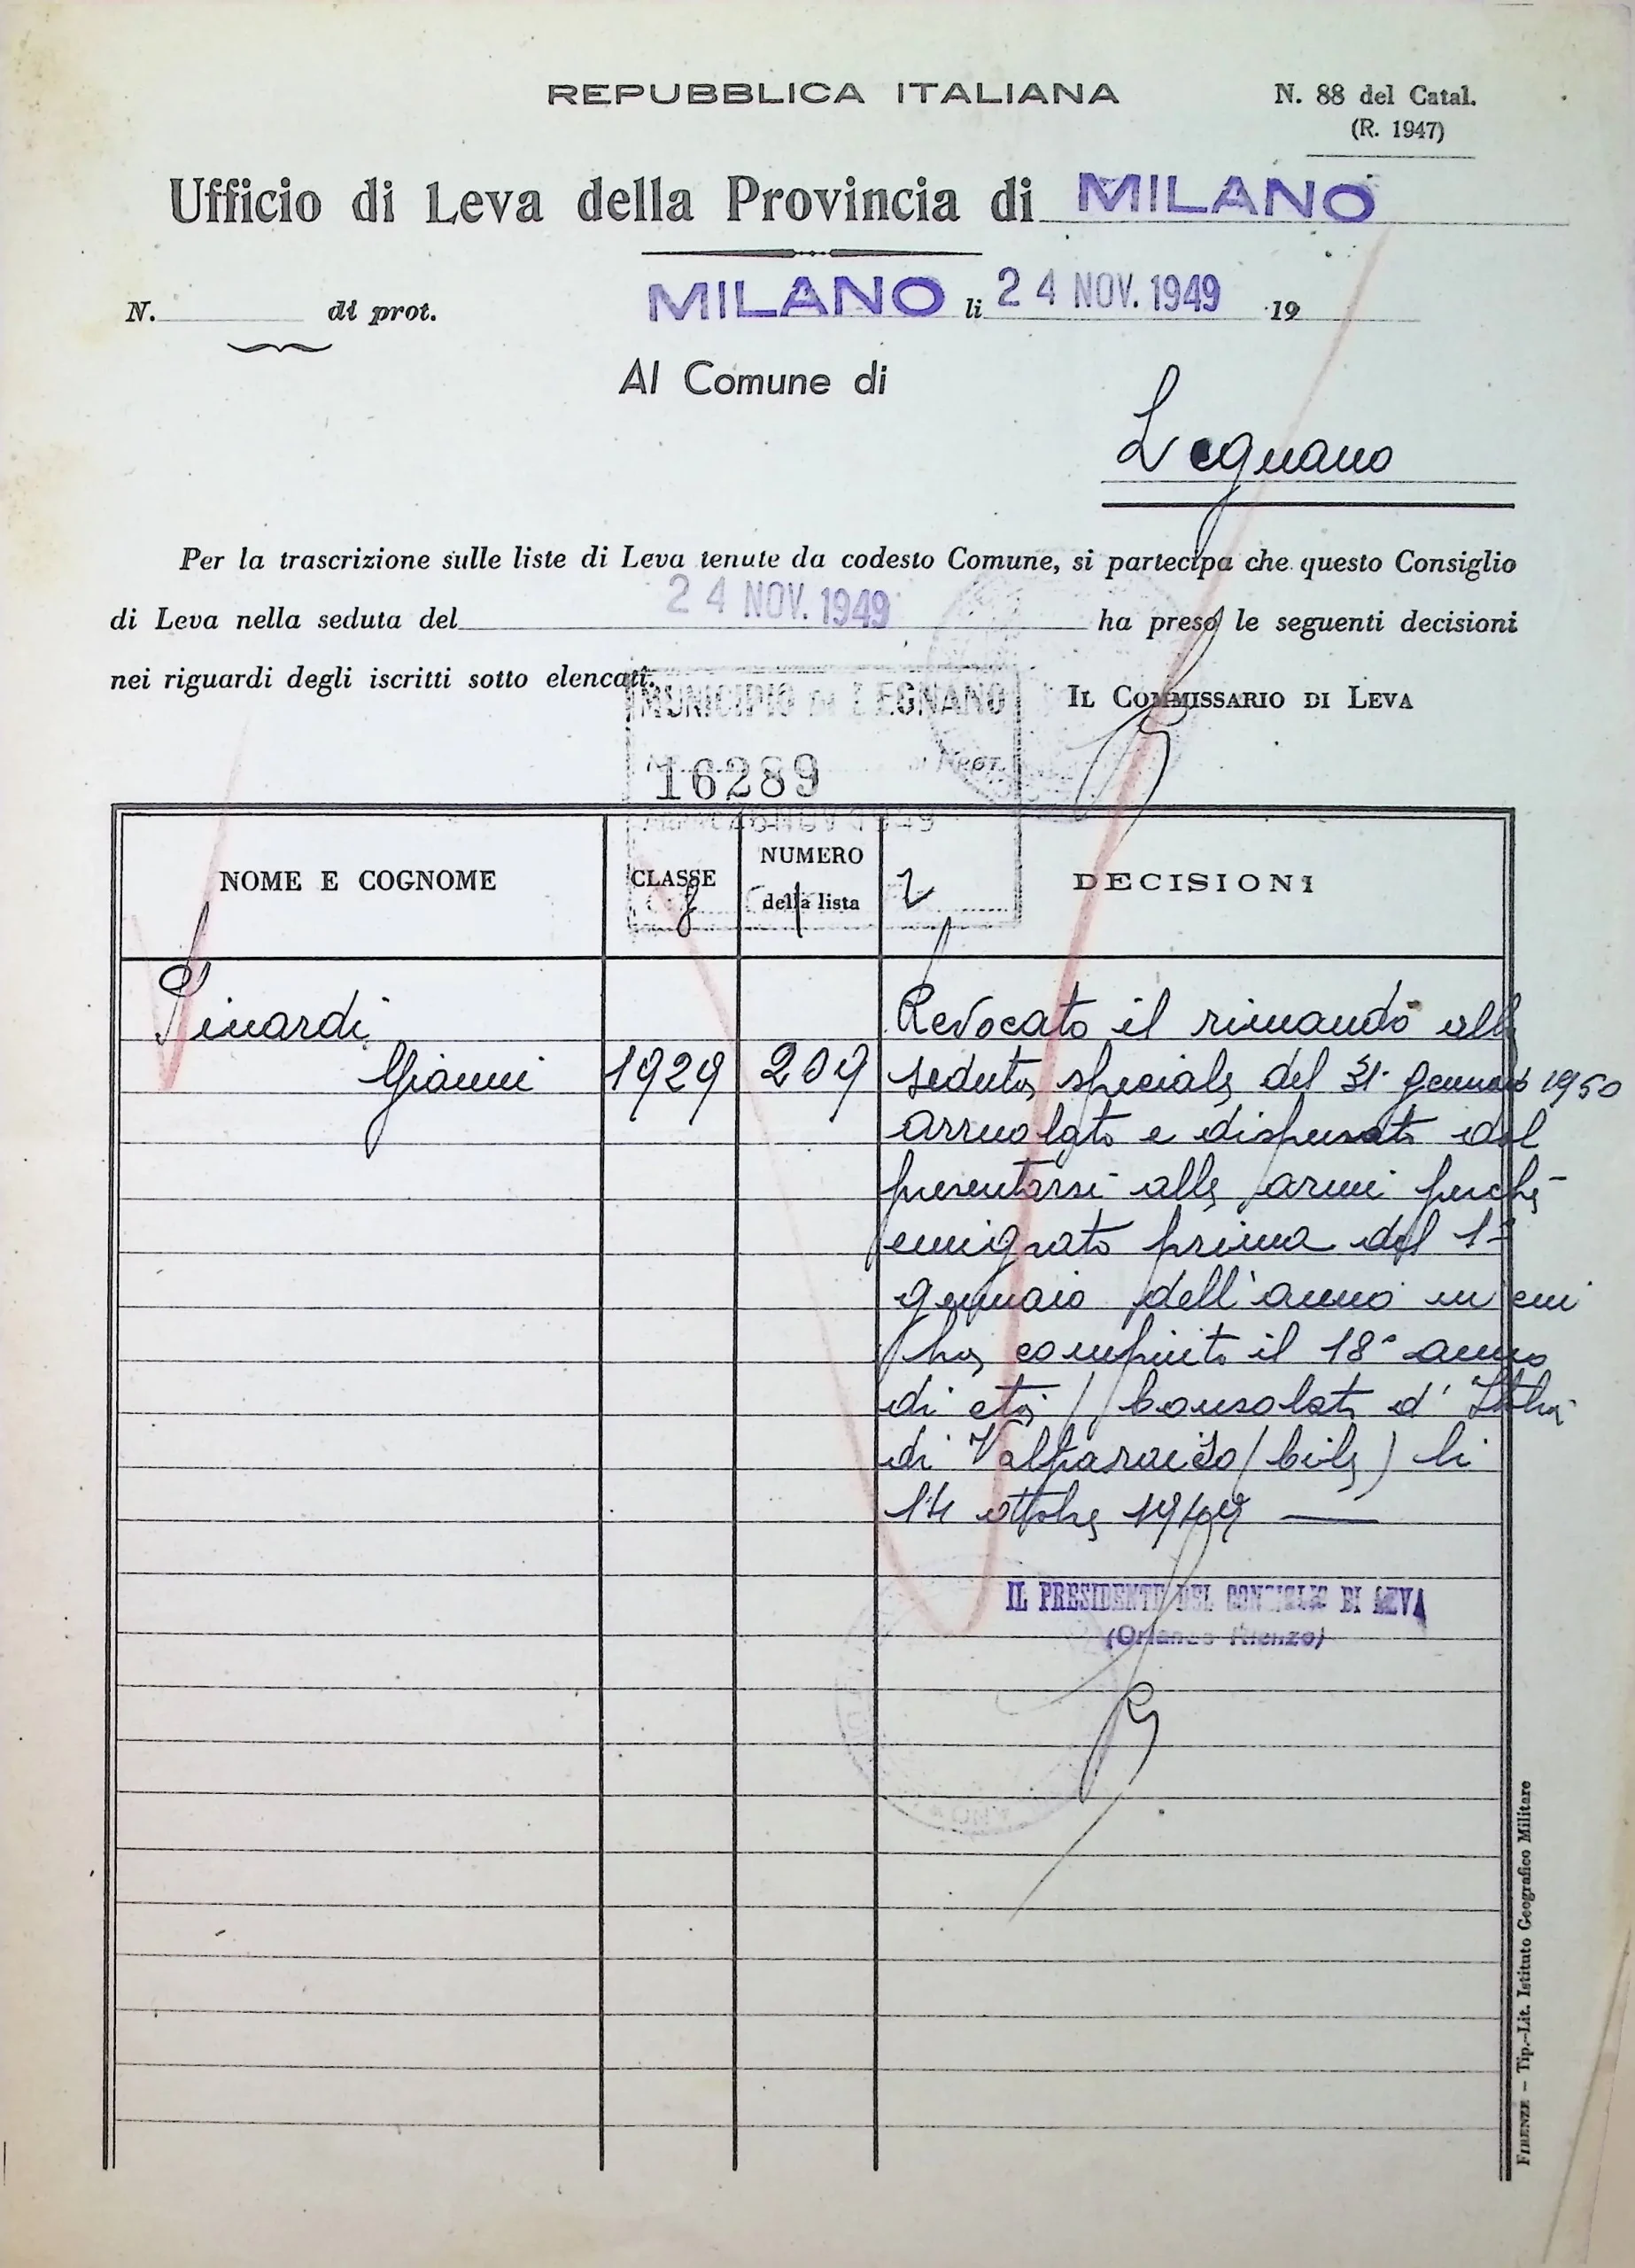 REPUBBLICA ITALIANA
N. 88 del Catal.
(R. 1947)
Ufficio di Leva della Provincia di MILANO
N. di prot.
MILANO li 24 NOV. 1949 19
Al Comune di
Legnano
Per la trascrizione sulle liste di Leva tenute da codesto Comune, si partecipa che questo Consiglio
di Leva nella seduta del 24 NOV. 1949 ha preso le seguenti decisioni
nei riguardi degli iscritti sotto elencati.
IL COMMISSARIO DI LEVA
MUNICIPIO DI LEGNANO
16289
DI PROT.
26 NOV 1949
NOME E COGNOME
CLASSE
NUMERO
della lista
DECISIONI
8 1 2
Pinardi
Gianni 1929 209
Revocato il rimando alla
seduta speciale del 31 gennaio 1950
arruolato e dispensato dal
presentarsi alle armi perché
emigrato prima del 1°
gennaio dell'anno in cui
ha compiuto il 18° anno
di età / Consolato d'Italia
di Valparaiso (Cile) li
14 ottobre 1949
IL PRESIDENTE DEL CONSIGLIO DI LEVA
(Orlando Rienzo)
FIRENZE - Tip.-Lit. Istituto Geografico Militare